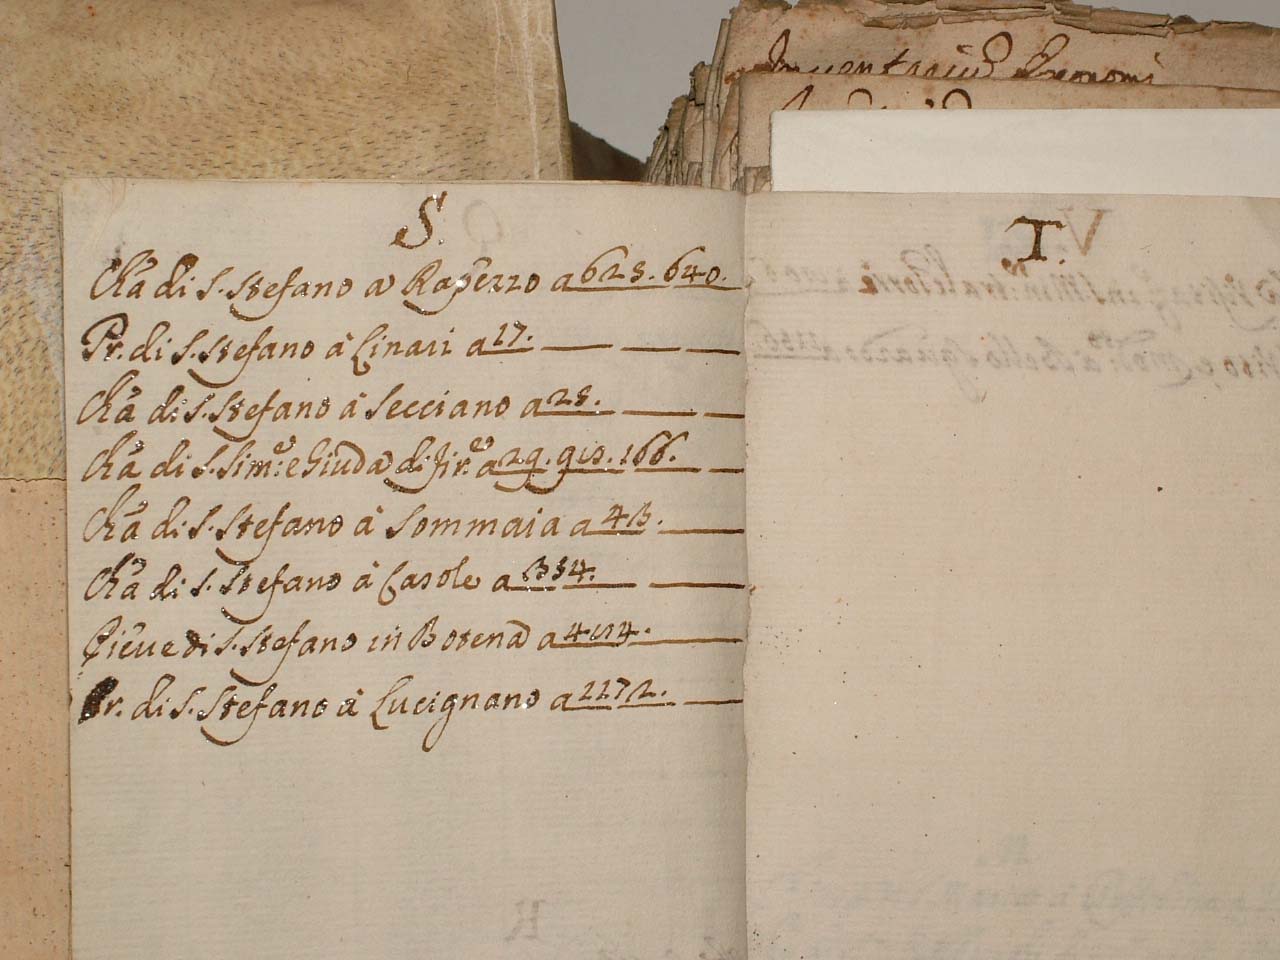 Inventarium Economi
S.
Cħa di S. Stefano a Rapezzo a 628. 640.
Pr. di S. Stefano à Linari a 17.
Cħa di S. Stefano à Secciano a 28.
Cħa di S. Sim:e e Giuda di Fir.e a 29. 910. 166.
Cħa di S. Stefano à Sommaia a 43.
Cħa di S. Stefano à Casole a 354.
Pieue di S. Stefano in Botena a 404.
Pr. di S. Stefano à Lucignano a 1172.
T.